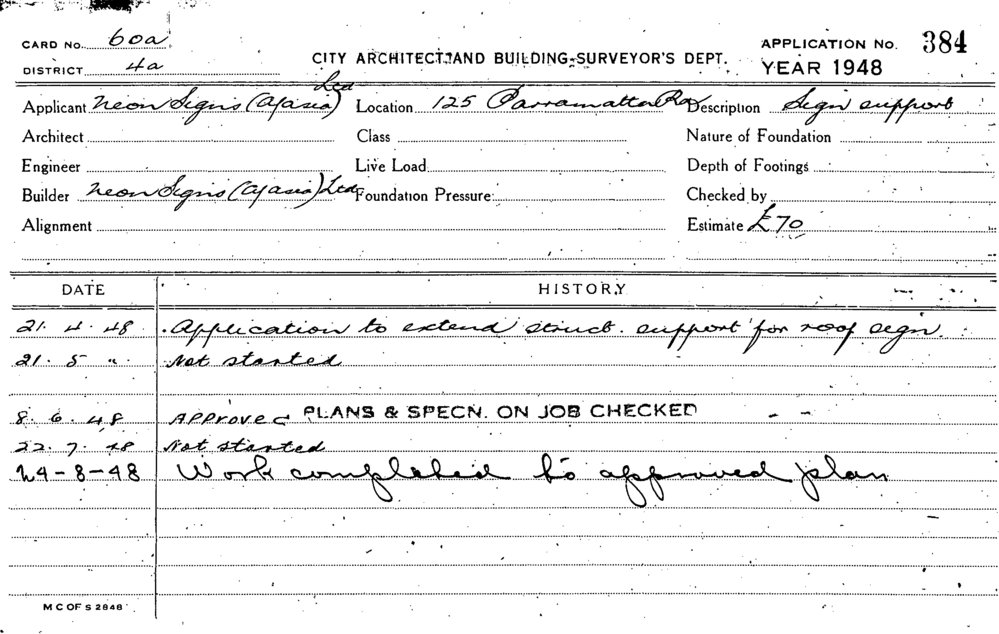 CARD No. 60a
CITY ARCHITECT AND BUILDING SURVEYOR'S DEPT.
APPLICATION No. 384
DISTRICT 4a
YEAR 1948
Applicant Neon Signs (A/asia) Ltd Location 125 Parramatta Rd Description Sign support
Architect Class Nature of Foundation
Engineer Live Load Depth of Footings
Builder Neon Signs (A/asia) Ltd Foundation Pressure Checked by
Alignment Estimate £70
DATE HISTORY
21. 4. 48. Application to extend struct. support for roof sign.
21. 5 " Not started
8. 6. 48 Approved PLANS & SPECN. ON JOB CHECKED
22. 7. 48 Not started
24-8-48 Work completed to approved plan
M C OF S 2848